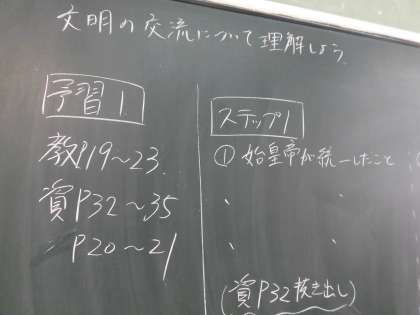 文明の交流について理解しよう
予習1
教P19～23.
資P32～35
P20～21
ステップ1
① 始皇帝が統一したこと
、 、
、 、
(資P32抜き出し)